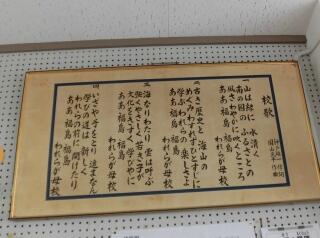 校歌
一 山は緑に 水清く
南の国の ふるさとの
風さわやかに 吹くところ
ああ 福島 福島
われらが母校
二 古き歴史と 海山の
めぐみわすれず ひとすじに
学ぶわれらの 楽しさよ
ああ 福島 福島
われらが母校
三 海なりわたり 雲は呼ぶ
強くやさしく 若き子が
文化ときずく 学びやに
ああ 福島 福島
われらが母校
四 いざや手をとり 進まなん
学びの道は 新しく
われらの前に 開けたり
ああ 福島 福島
われらが母校